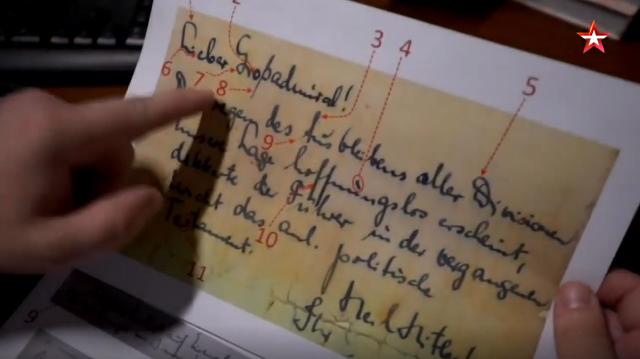 2
3
4
5
Lieber Großadmiral!
6
7
8
wegen des Ausbleibens aller Divisionen
9
unsere Lage hoffnungslos erscheint,
diktierte der Führer in der vergangenen
Nacht das anl. politische
10
Testament.
11
Heil Hitler
Ihr
9